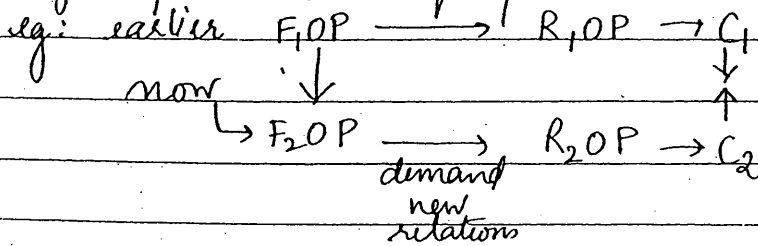 eg: earlier F₁OP → R₁OP → C₁
now ↳ F₂OP → R₂OP → C₂
demand
new
relations